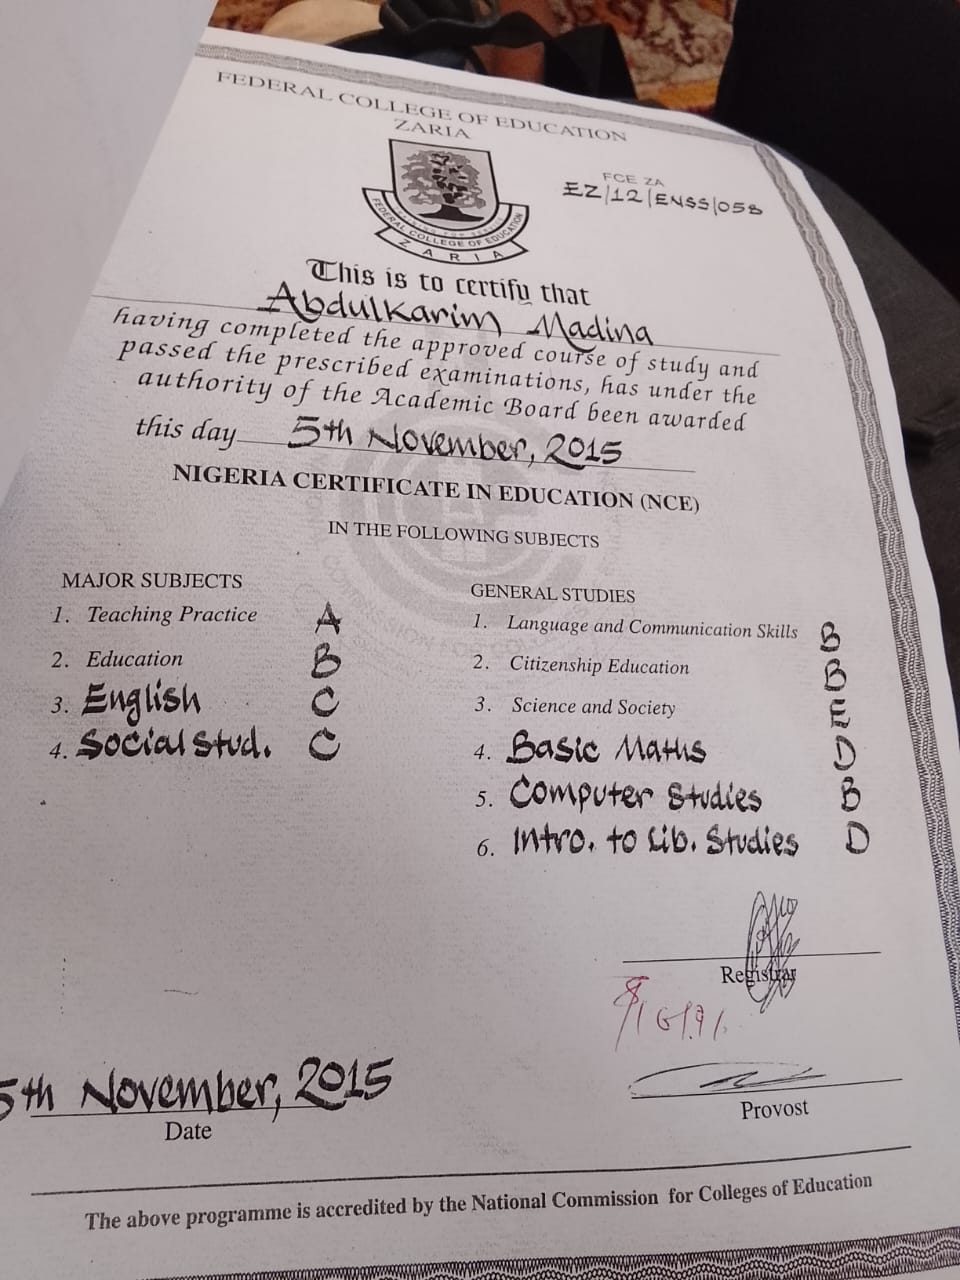 FEDERAL COLLEGE OF EDUCATION
ZARIA
FCE ZA
EZ/12/ENSS/058
FEDERAL COLLEGE OF EDUCATION
ZARIA
This is to certify that
Abdulkarim Madina
having completed the approved course of study and
passed the prescribed examinations, has under the
authority of the Academic Board been awarded
this day 5th November, 2015
NIGERIA CERTIFICATE IN EDUCATION (NCE)
IN THE FOLLOWING SUBJECTS
MAJOR SUBJECTS
1. Teaching Practice A
2. Education B
3. English C
4. Social Stud. C
GENERAL STUDIES
1. Language and Communication Skills B
2. Citizenship Education B
3. Science and Society E
4. Basic Maths D
5. Computer Studies B
6. Intro. to Lib. Studies D
Registrar
Provost
5th November, 2015
Date
The above programme is accredited by the National Commission for Colleges of Education